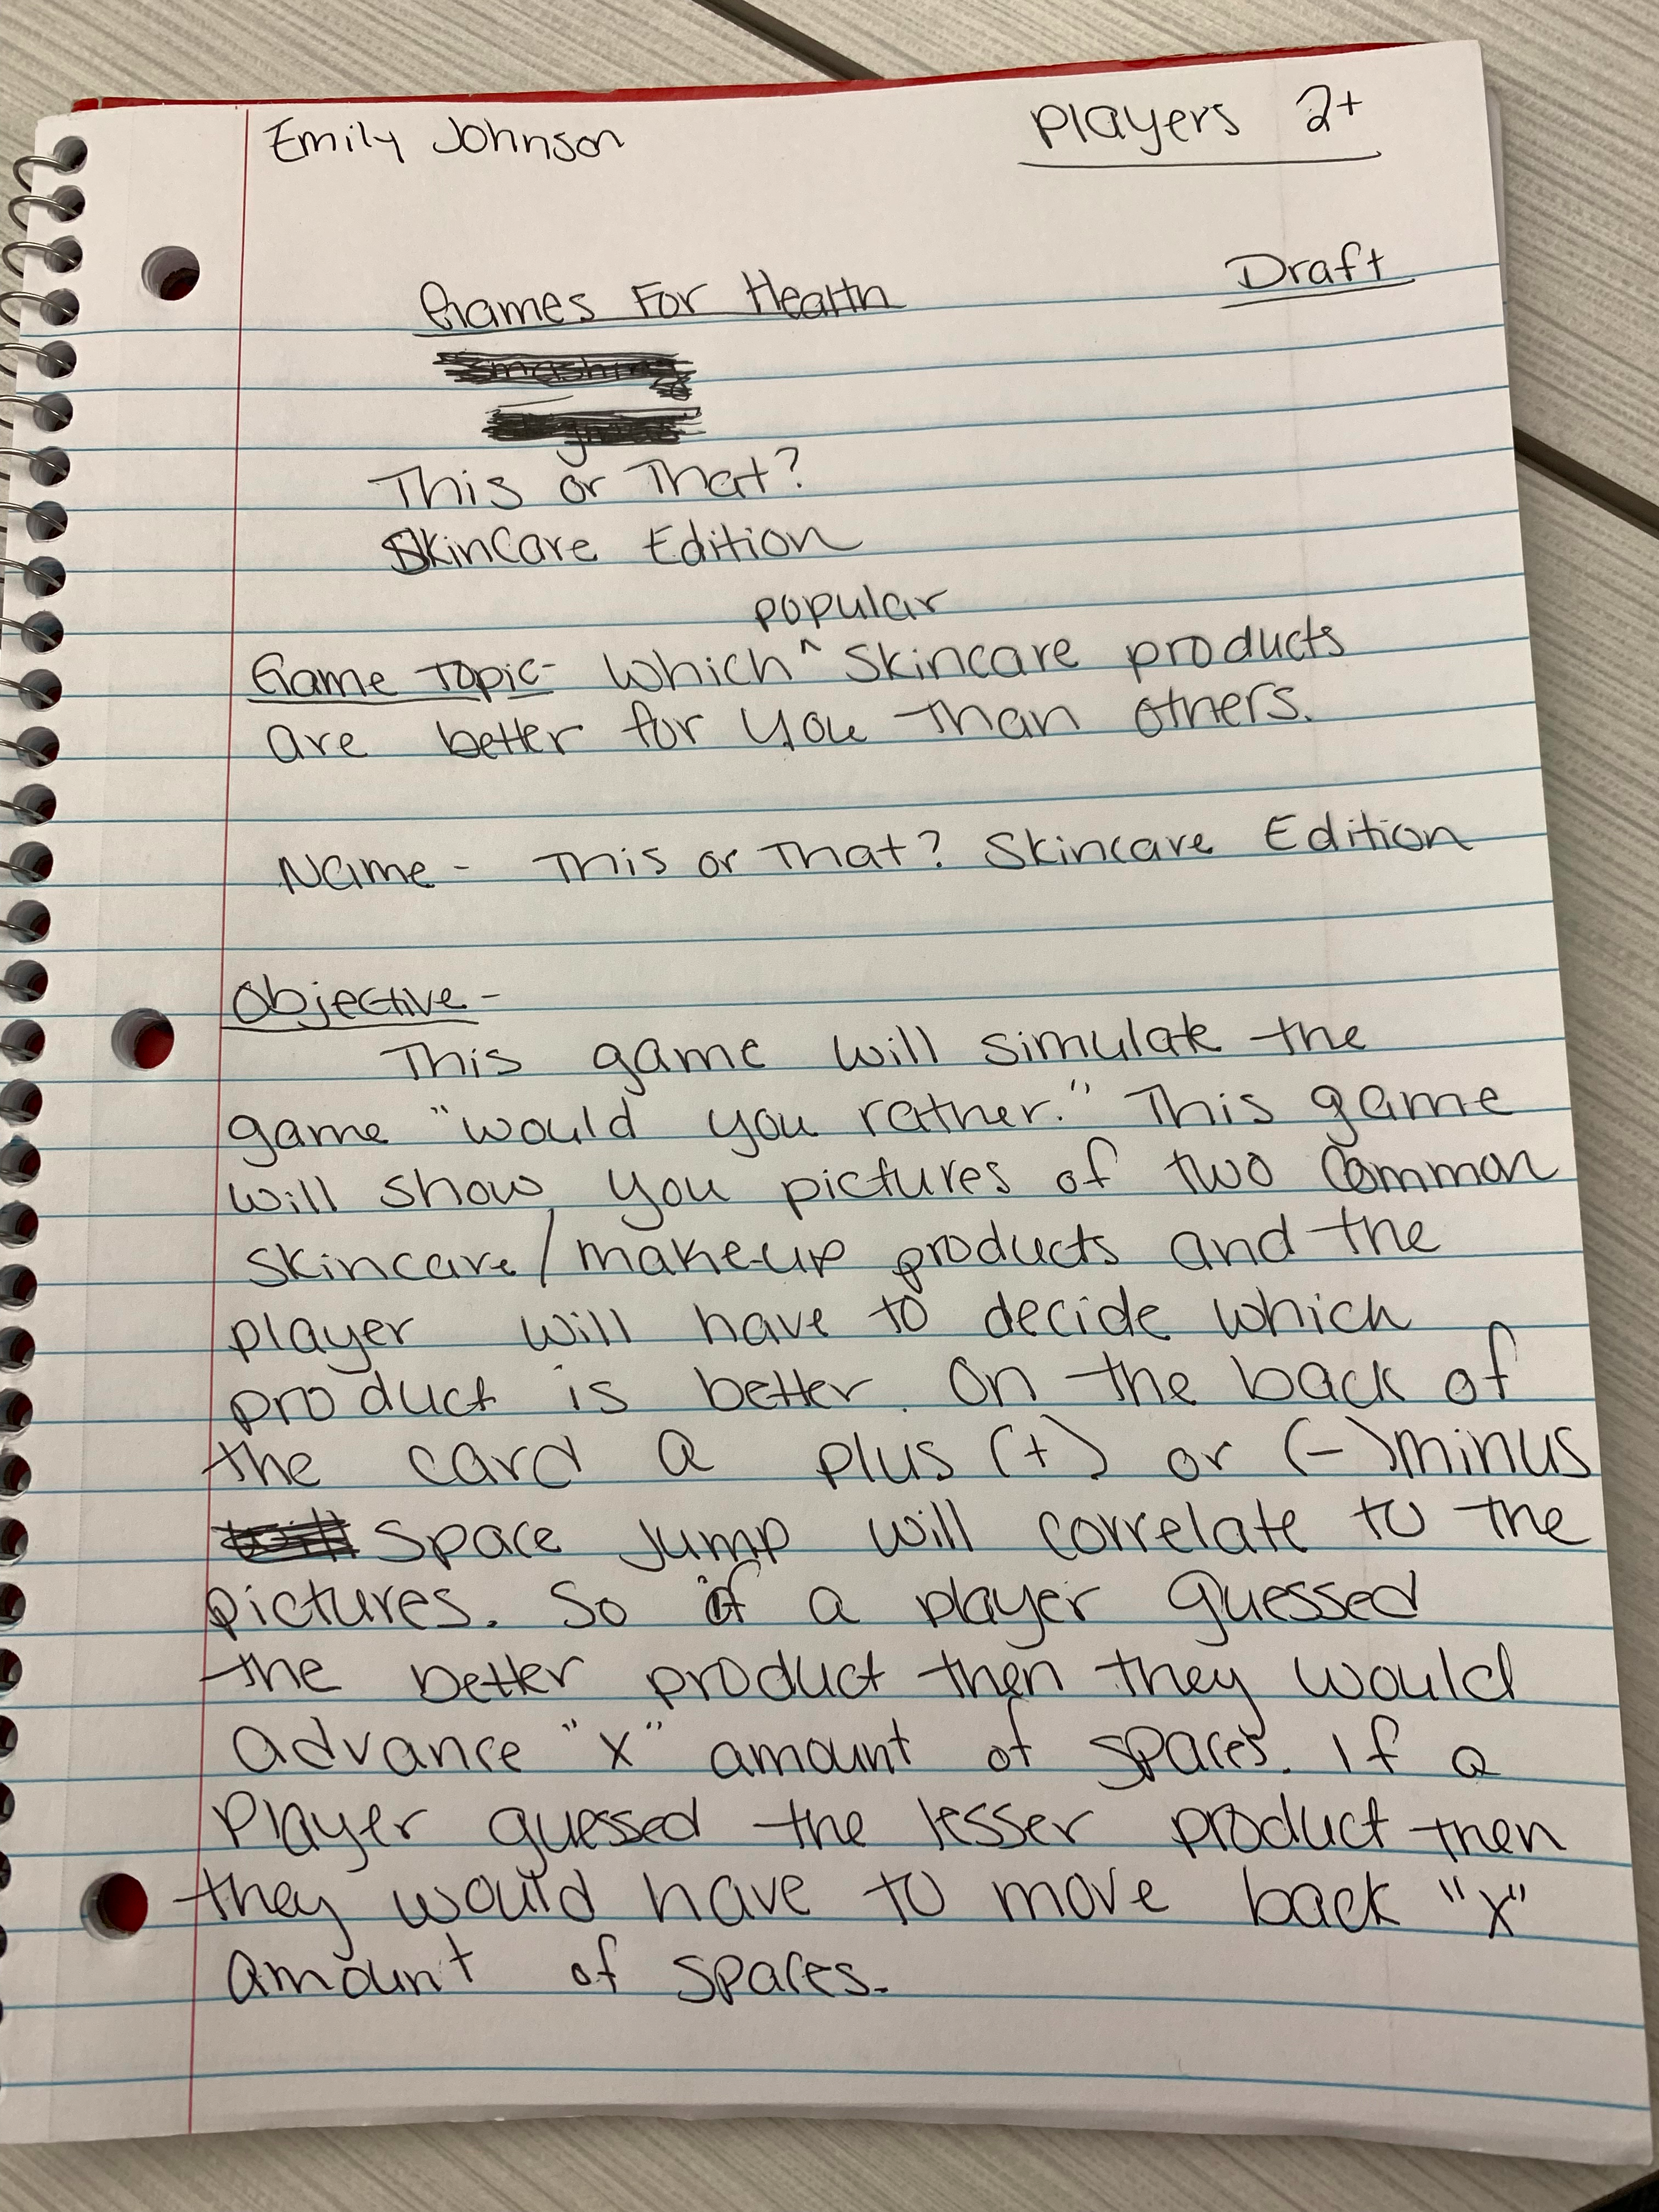 Emily Johnson
Players 2+
Draft
Games For Health
This or That?
Skincare Edition
popular
Game Topic- Which ^ Skincare products
are better for you than others.
Name - This or That? Skincare Edition
Objective -
This game will simulate the
game "would you rather." This game
will show you pictures of two Common
skincare/makeup products and the
player will have to decide which
product is better. On the back of
the card a plus (+) or (-)minus
Space Jump will correlate to the
pictures. So if a player guessed
the better product then they would
advance "x" amount of spaces. If a
Player guessed the lesser product then
they would have to move back "x"
amount of spaces.